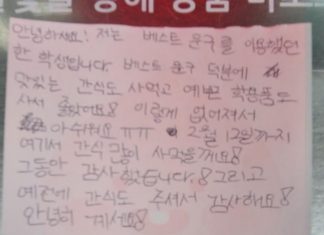 안녕하세요! 저는 베스트 문구를 이용했던
한 학생입니다. 베스트 문구 덕분에
맛있는 간식도 사먹고 예쁜 학용품도
사서 좋았어요! 이렇게 없어져서
아쉬워요 ㅠㅠ 2월 12일까지
여기서 간식 많이 사먹을게요!
그동안 감사했습니다.! 그리고
예전에 간식도 주셔서 감사해요!
안녕히 계세요!